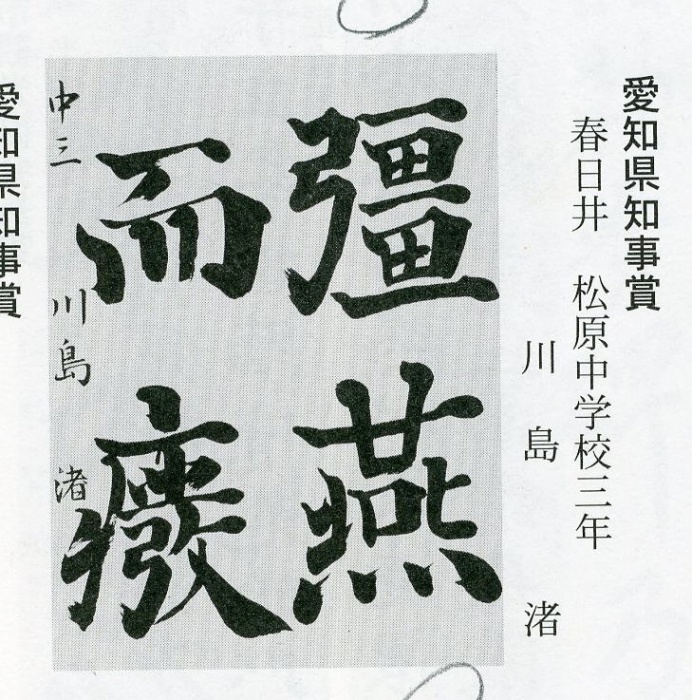 愛知県知事賞
春日井 松原中学校三年
川島 渚
彊燕
而癈
中三 川島 渚
愛知県知事賞